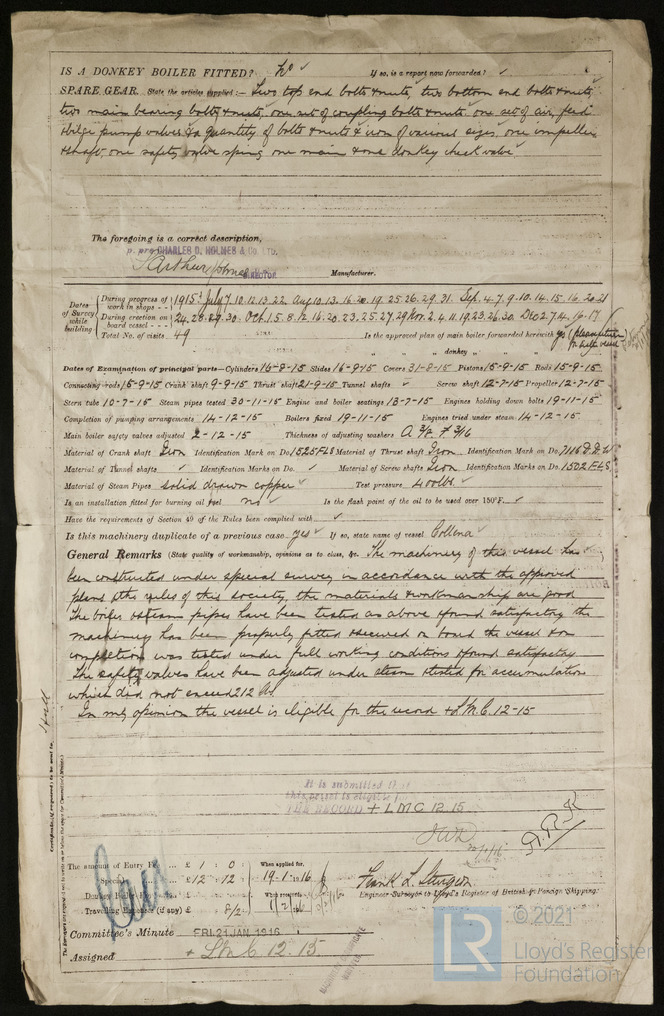 IS A DONKEY BOILER FITTED? No If so, is a report now forwarded?
SPARE GEAR. State the articles supplied:— Two top end bolts & nuts, two bottom end bolts & nuts
two main bearing bolts & nuts, one set of coupling bolts & nuts one set of air, feed
& bilge pump valves & a quantity of bolts & nuts & iron of various sizes, one impeller
& shaft, one safety valve spring one main & one donkey check valve
The foregoing is a correct description,
p. pro CHARLES D. HOLMES & Co. LTD.
Arthur Holmes DIRECTOR Manufacturer.
Dates of Survey while building
During progress of work in shops - - 1915 July 7. 10. 12. 13. 22. Aug 10. 13. 16. 20. 19. 25. 26. 29. 31. Sep. 4. 7. 9. 10. 14. 15. 16. 20. 21
During erection on board vessel - - - 24. 28. 29. 30. Oct 1. 5. 8. 12. 16. 20. 23. 25. 27. 29 Nov. 2. 4. 11. 19. 23. 26. 30. Dec 2. 7. 4. 16. 17
Total No. of visits 49 Is the approved plan of main boiler forwarded herewith yes
" " " donkey " " "
Dates of Examination of principal parts—Cylinders 16-8-15 Slides 16-9-15 Covers 31-8-15 Pistons 15-9-15 Rods 15-9-15
Connecting rods 15-9-15 Crank shaft 9-9-15 Thrust shaft 21-9-15 Tunnel shafts Screw shaft 12-7-15 Propeller 12-7-15
Stern tube 10-7-15 Steam pipes tested 30-11-15 Engine and boiler seatings 13-7-15 Engines holding down bolts 19-11-15
Completion of pumping arrangements 14-12-15 Boilers fixed 19-11-15 Engines tried under steam 14-12-15
Main boiler safety valves adjusted 2-12-15 Thickness of adjusting washers
Material of Crank shaft Iron Identification Mark on Do. 1525 FLS Material of Thrust shaft Iron Identification Mark on Do. 7116 D.D.W
Material of Tunnel shafts Identification Marks on Do. Material of Screw shafts Iron Identification Marks on Do. 1502 FLS
Material of Steam Pipes solid drawn copper Test pressure 400 lbs
Is an installation fitted for burning oil fuel no Is the flash point of the oil to be used over 150°F.
Have the requirements of Section 49 of the Rules been complied with
Is this machinery duplicate of a previous case yes If so, state name of vessel Collena
General Remarks (State quality of workmanship, opinions as to class, &c. The machinery of this vessel has
been constructed under special survey in accordance with the approved
plans & the rules of this society, the materials & workmanship are good
The boiler & steam pipes have been tested as above & found satisfactory the
machinery has been properly fitted & secured on board the vessel & on
completion was tested under full working conditions & found satisfactory
The safety valves have been adjusted under steam & tested for accumulation
which did not exceed 212 lbs
In my opinion the vessel is eligible for the record + LMC. 12-15
It is submitted that
this vessel is eligible for
THE RECORD + LMC 12 15
The amount of Entry Fee .. £ 1 : 0 : When applied for,
Special .. £ 12 : 12 : 19.1.1916
Donkey Boiler Fee .. £ When received,
Travelling Expenses (if any) £ : 8/2
Frank L. Sturgeon
Engineer Surveyor to Lloyd's Register of British & Foreign Shipping.
Committee's Minute FRI. 21 JAN. 1916
Assigned + LMC. 12. 15
Hull
© 2021
LR
Lloyd's Register
Foundation